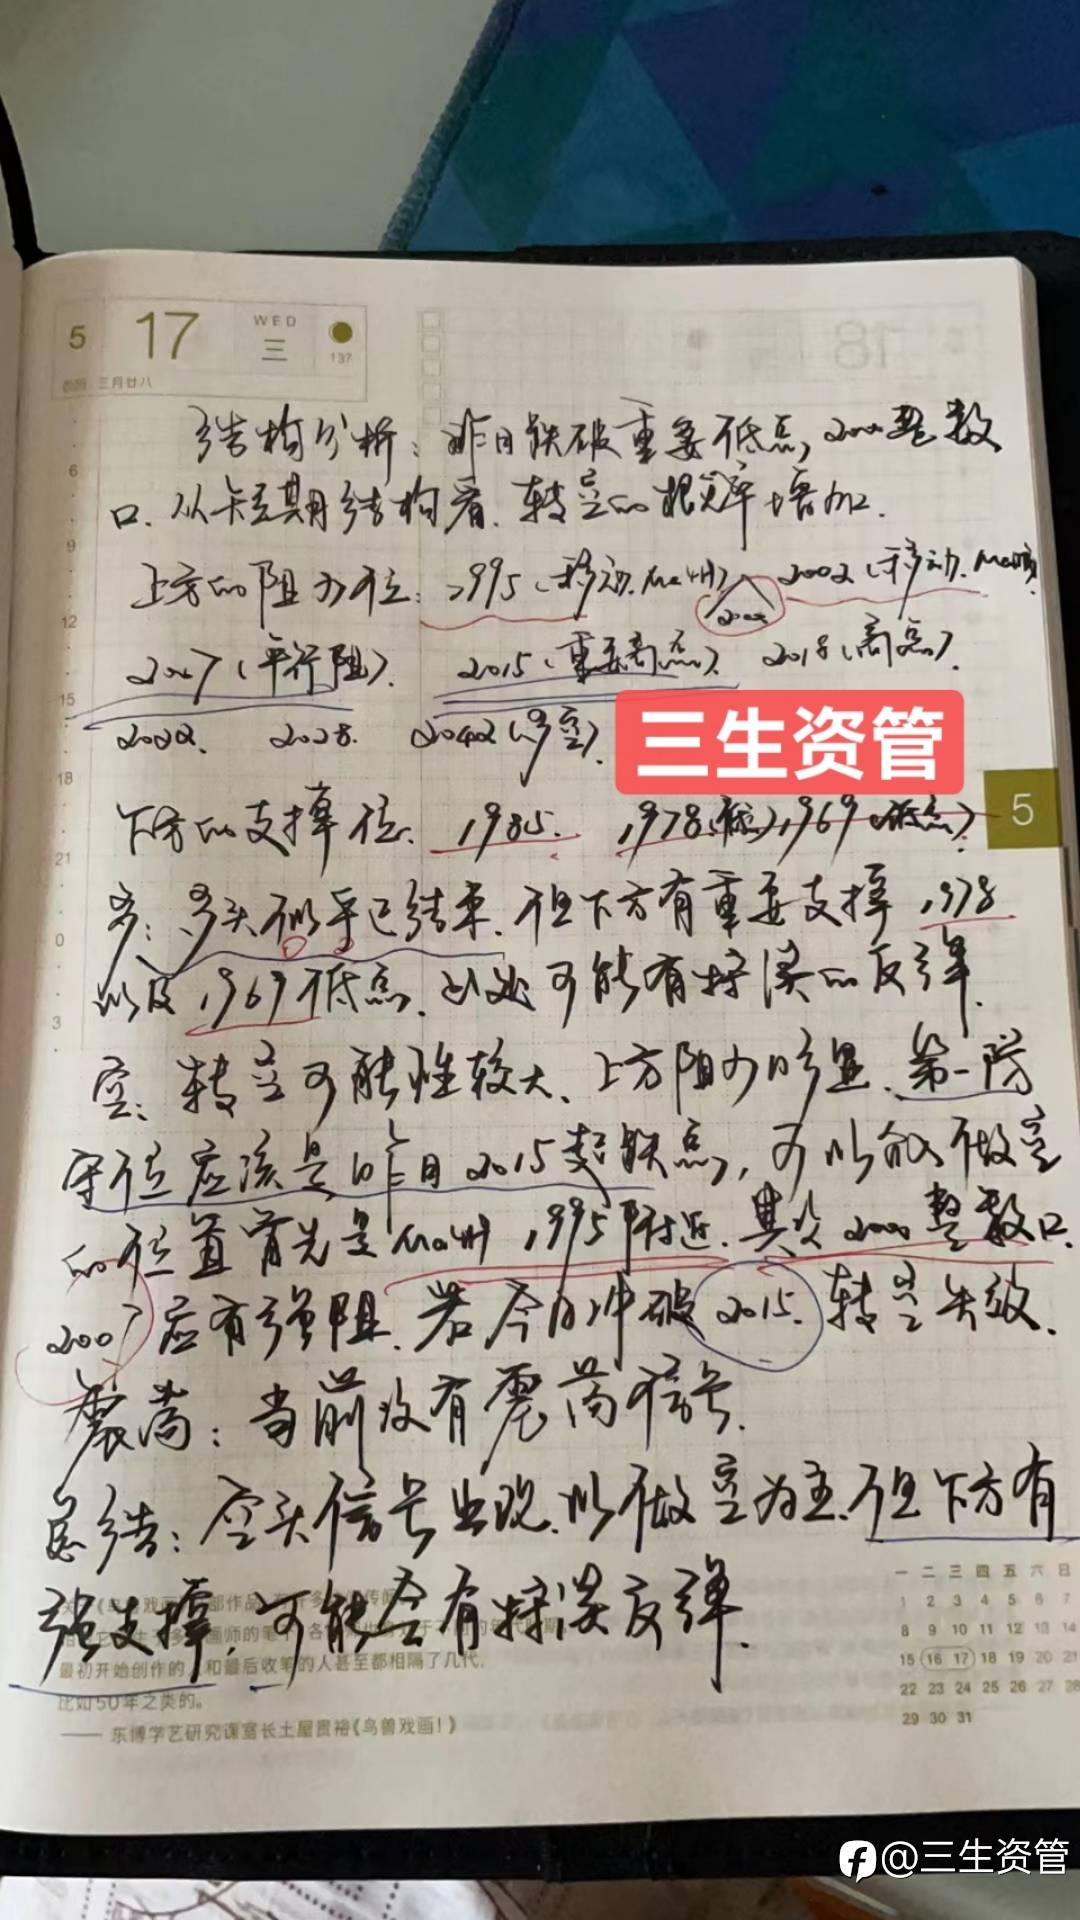 5 17 WED 三 137
三月廿八
18
结构分析：昨日跌破重要低点，2000整数
口.从短期结构看.转空的概率增加.
上方的阻力位：1995（移动.Ma4H） 2002（移动.Ma
2000
2007（平行阻）. 2015（重要高点）. 2018（高点）.
2022. 2028. 2042（多空）.
三生资管
下方的支撑位. 1985. 1978（低）,1969（低点）.
5
多：多头似乎已结束.但下方有重要支撑1978
以及1969低点.此处可能有探涨的反弹.
空：转空可能性较大.上方阻力明显.第一防
守位应该是昨日2015起跌点，可以做空
的位置首先是Ma4H 1995附近.其次2000整数口.
2007应有强阻.若今日冲破2015.转空失效.
震荡：当前没有震荡信号.
总结：空头信号出现.以做空为主.但下方有
强支撑.可能会有探涨反弹.
最初开始创作的人和最后收笔的人甚至都相隔了几代.
比如50年之类的。
——东博学艺研究课室长土屋贵裕《鸟兽戏画！》
6
9
12
15
18
21
0
3
一 二 三 四 五 六 日
1 2 3 4 5 6 7
8 9 10 11 12 13 14
15 16 17 18 19 20 21
22 23 24 25 26 27 28
29 30 31
@三生资管